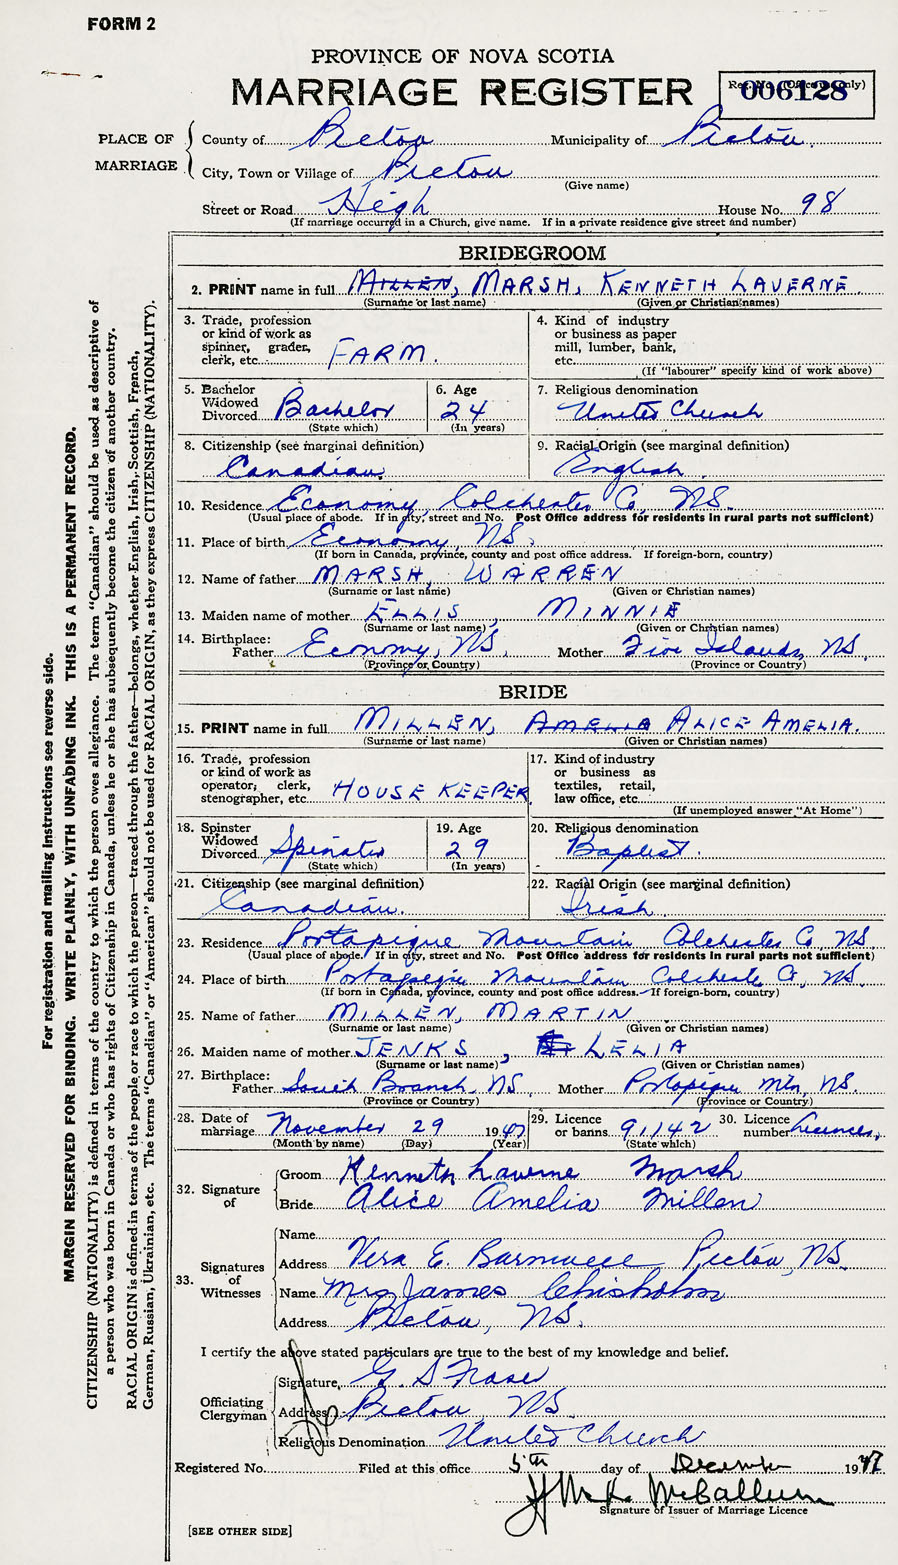 FORM 2
PROVINCE OF NOVA SCOTIA
MARRIAGE REGISTER
Reg. No. (Office use only)
006128
PLACE OF MARRIAGE
County of Pictou Municipality of Pictou
City, Town or Village of Pictou
(Give name)
Street or Road High House No. 98
(If marriage occurred in a Church, give name. If in a private residence give street and number)
BRIDEGROOM
2. PRINT name in full MILLEN, MARSH, KENNETH LAVERNE
(Surname or last name) (Given or Christian names)
3. Trade, profession or kind of work as spinner, grader, clerk, etc. FARM.
4. Kind of industry or business as paper mill, lumber, bank, etc.
(If "labourer" specify kind of work above)
5. Bachelor Widowed Divorced Bachelor
(State which)
6. Age 24
(In years)
7. Religious denomination
United Church
8. Citizenship (see marginal definition)
Canadian
9. Racial Origin (see marginal definition)
English
10. Residence Economy, Colchester Co, NS.
(Usual place of abode. If in city, street and No. Post Office address for residents in rural parts not sufficient)
11. Place of birth Economy, NS.
(If born in Canada, province, county and post office address. If foreign-born, country)
12. Name of father MARSH, WARREN
(Surname or last name) (Given or Christian names)
13. Maiden name of mother ELLIS, MINNIE
(Surname or last name) (Given or Christian names)
14. Birthplace: Father Economy, NS. Mother Five Islands, NS.
(Province or Country) (Province or Country)
BRIDE
15. PRINT name in full MILLEN, AMELIA ALICE AMELIA.
(Surname or last name) (Given or Christian names)
16. Trade, profession or kind of work as operator, clerk, stenographer, etc. HOUSE KEEPER
17. Kind of industry or business as textiles, retail, law office, etc.
(If unemployed answer "At Home")
18. Spinster Widowed Divorced Spinster
(State which)
19. Age 29
(In years)
20. Religious denomination
Baptist.
21. Citizenship (see marginal definition)
Canadian.
22. Racial Origin (see marginal definition)
Irish.
23. Residence Portapique Mountain Colchester Co, NS.
(Usual place of abode. If in city, street and No. Post Office address for residents in rural parts not sufficient)
24. Place of birth Portapique Mountain Colchester Co, NS.
(If born in Canada, province, county and post office address. If foreign-born, country)
25. Name of father MILLEN, MARTIN
(Surname or last name) (Given or Christian names)
26. Maiden name of mother JENKS, LELIA
(Surname or last name) (Given or Christian names)
27. Birthplace: Father South Branch, NS Mother Portapique Mtn, NS.
(Province or Country) (Province or Country)
28. Date of marriage November 29 1947
(Month by name) (Day) (Year)
29. Licence or banns 91,142
(State which)
30. Licence number Licences,
32. Signature of
Groom Kenneth Laverne Marsh
Bride Alice Amelia Millen
33. Signatures of Witnesses
Name
Address Vera E. Pictou, NS.
Name Mrs James Chisholm
Address Pictou, NS.
I certify the above stated particulars are true to the best of my knowledge and belief.
Officiating Clergyman
Signature G S Fraser
Address Pictou, NS.
Religious Denomination United Church
Registered No. Filed at this office 5th day of December 1947
McCallum
Signature of Issuer of Marriage Licence
[SEE OTHER SIDE]
For registration and mailing instructions see reverse side.
MARGIN RESERVED FOR BINDING. WRITE PLAINLY, WITH UNFADING INK. THIS IS A PERMANENT RECORD.
CITIZENSHIP (NATIONALITY) is defined in terms of the country to which the person owes allegiance. The term "Canadian" should be used as descriptive of
a person who was born in Canada or who has rights of Citizenship in Canada, unless he or she has subsequently become the citizen of another country.
RACIAL ORIGIN is defined in terms of the people or race to which the person—traced through the father—belongs, whether English, Irish, Scottish, French,
German, Russian, Ukrainian, etc. The terms "Canadian" or "American" should not be used for RACIAL ORIGIN, as they express CITIZENSHIP (NATIONALITY).